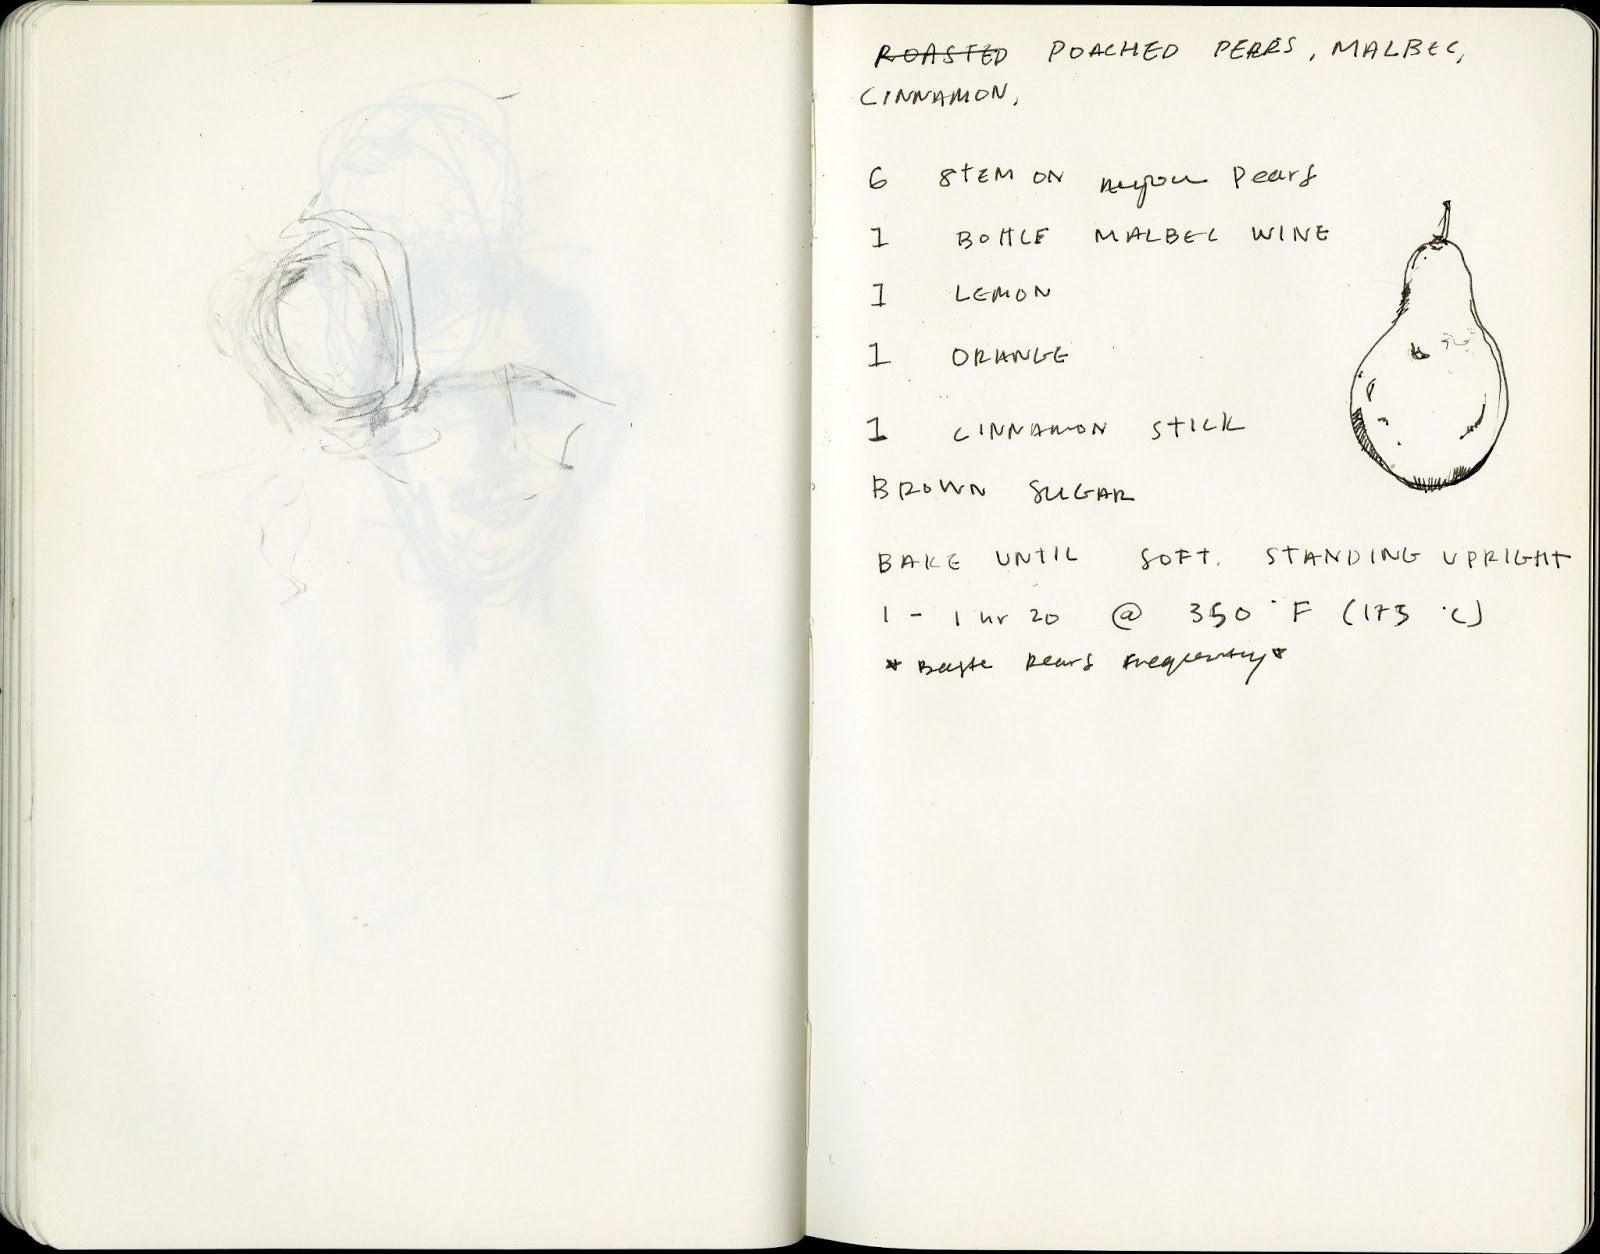 ROASTED POACHED PEARS, MALBEC,
CINNAMON,
6 STEM ON Anjou Pears
1 BOTTLE MALBEC WINE
1 LEMON
1 ORANGE
1 CINNAMON STICK
BROWN SUGAR
BAKE UNTIL SOFT. STANDING UPRIGHT
1 - 1 hr 20 @ 350 °F (175 °C)
* Baste Pears Frequently *